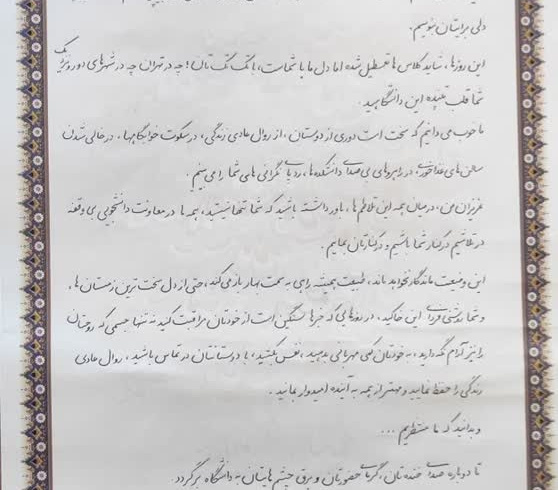 دلی برایتان بنویسم.
این روزها، شاید کلاس ها تعطیل شده اما دل ما با شماست، با تک تک تان! چه در تهران چه در شهرهای دور و نزدیک
شما قلب تپنده این دانشگاهید.
ما خوب می دانیم که سخت است دوری از دوستان، از روال عادی زندگی، در سکوت خوابگاهها، در خالی شدن
سالن های غذاخوری، در راهروهای بی صدای دانشکده ها، رد پای نگرانی های شما را می بینم.
عزیزان من، در میان همه این تلاطم ها، باور داشته باشید که شما تنها نیستید، همه ما در معاونت دانشجویی بی وقفه
در تلاشیم در کنار شما باشیم و در کنارتان بمانیم.
این وضعیت ماندگار نخواهد ماند، طبیعت همیشه راهی به سمت بهار باز می کند، حتی از دل سخت ترین زمستان ها،
و شما روشنی فردای این خاکید، در روزهایی که خبرها سنگین است از خودتان مراقبت کنید نه تنها جسمی که روحتان
را نیز آرام نگه دارید، به خودتان کمی مهربانی بدهید، نفس بکشید، با دوستانتان در تماس باشید، روال عادی
زندگی را حفظ نمایید و مهمتر از همه به آینده امیدوار بمانید.
و بدانید که ما منتظریم ...
تا دوباره صدای خنده تان، گرمای حضورتان و برق چشم هایتان به دانشگاه برگردد.